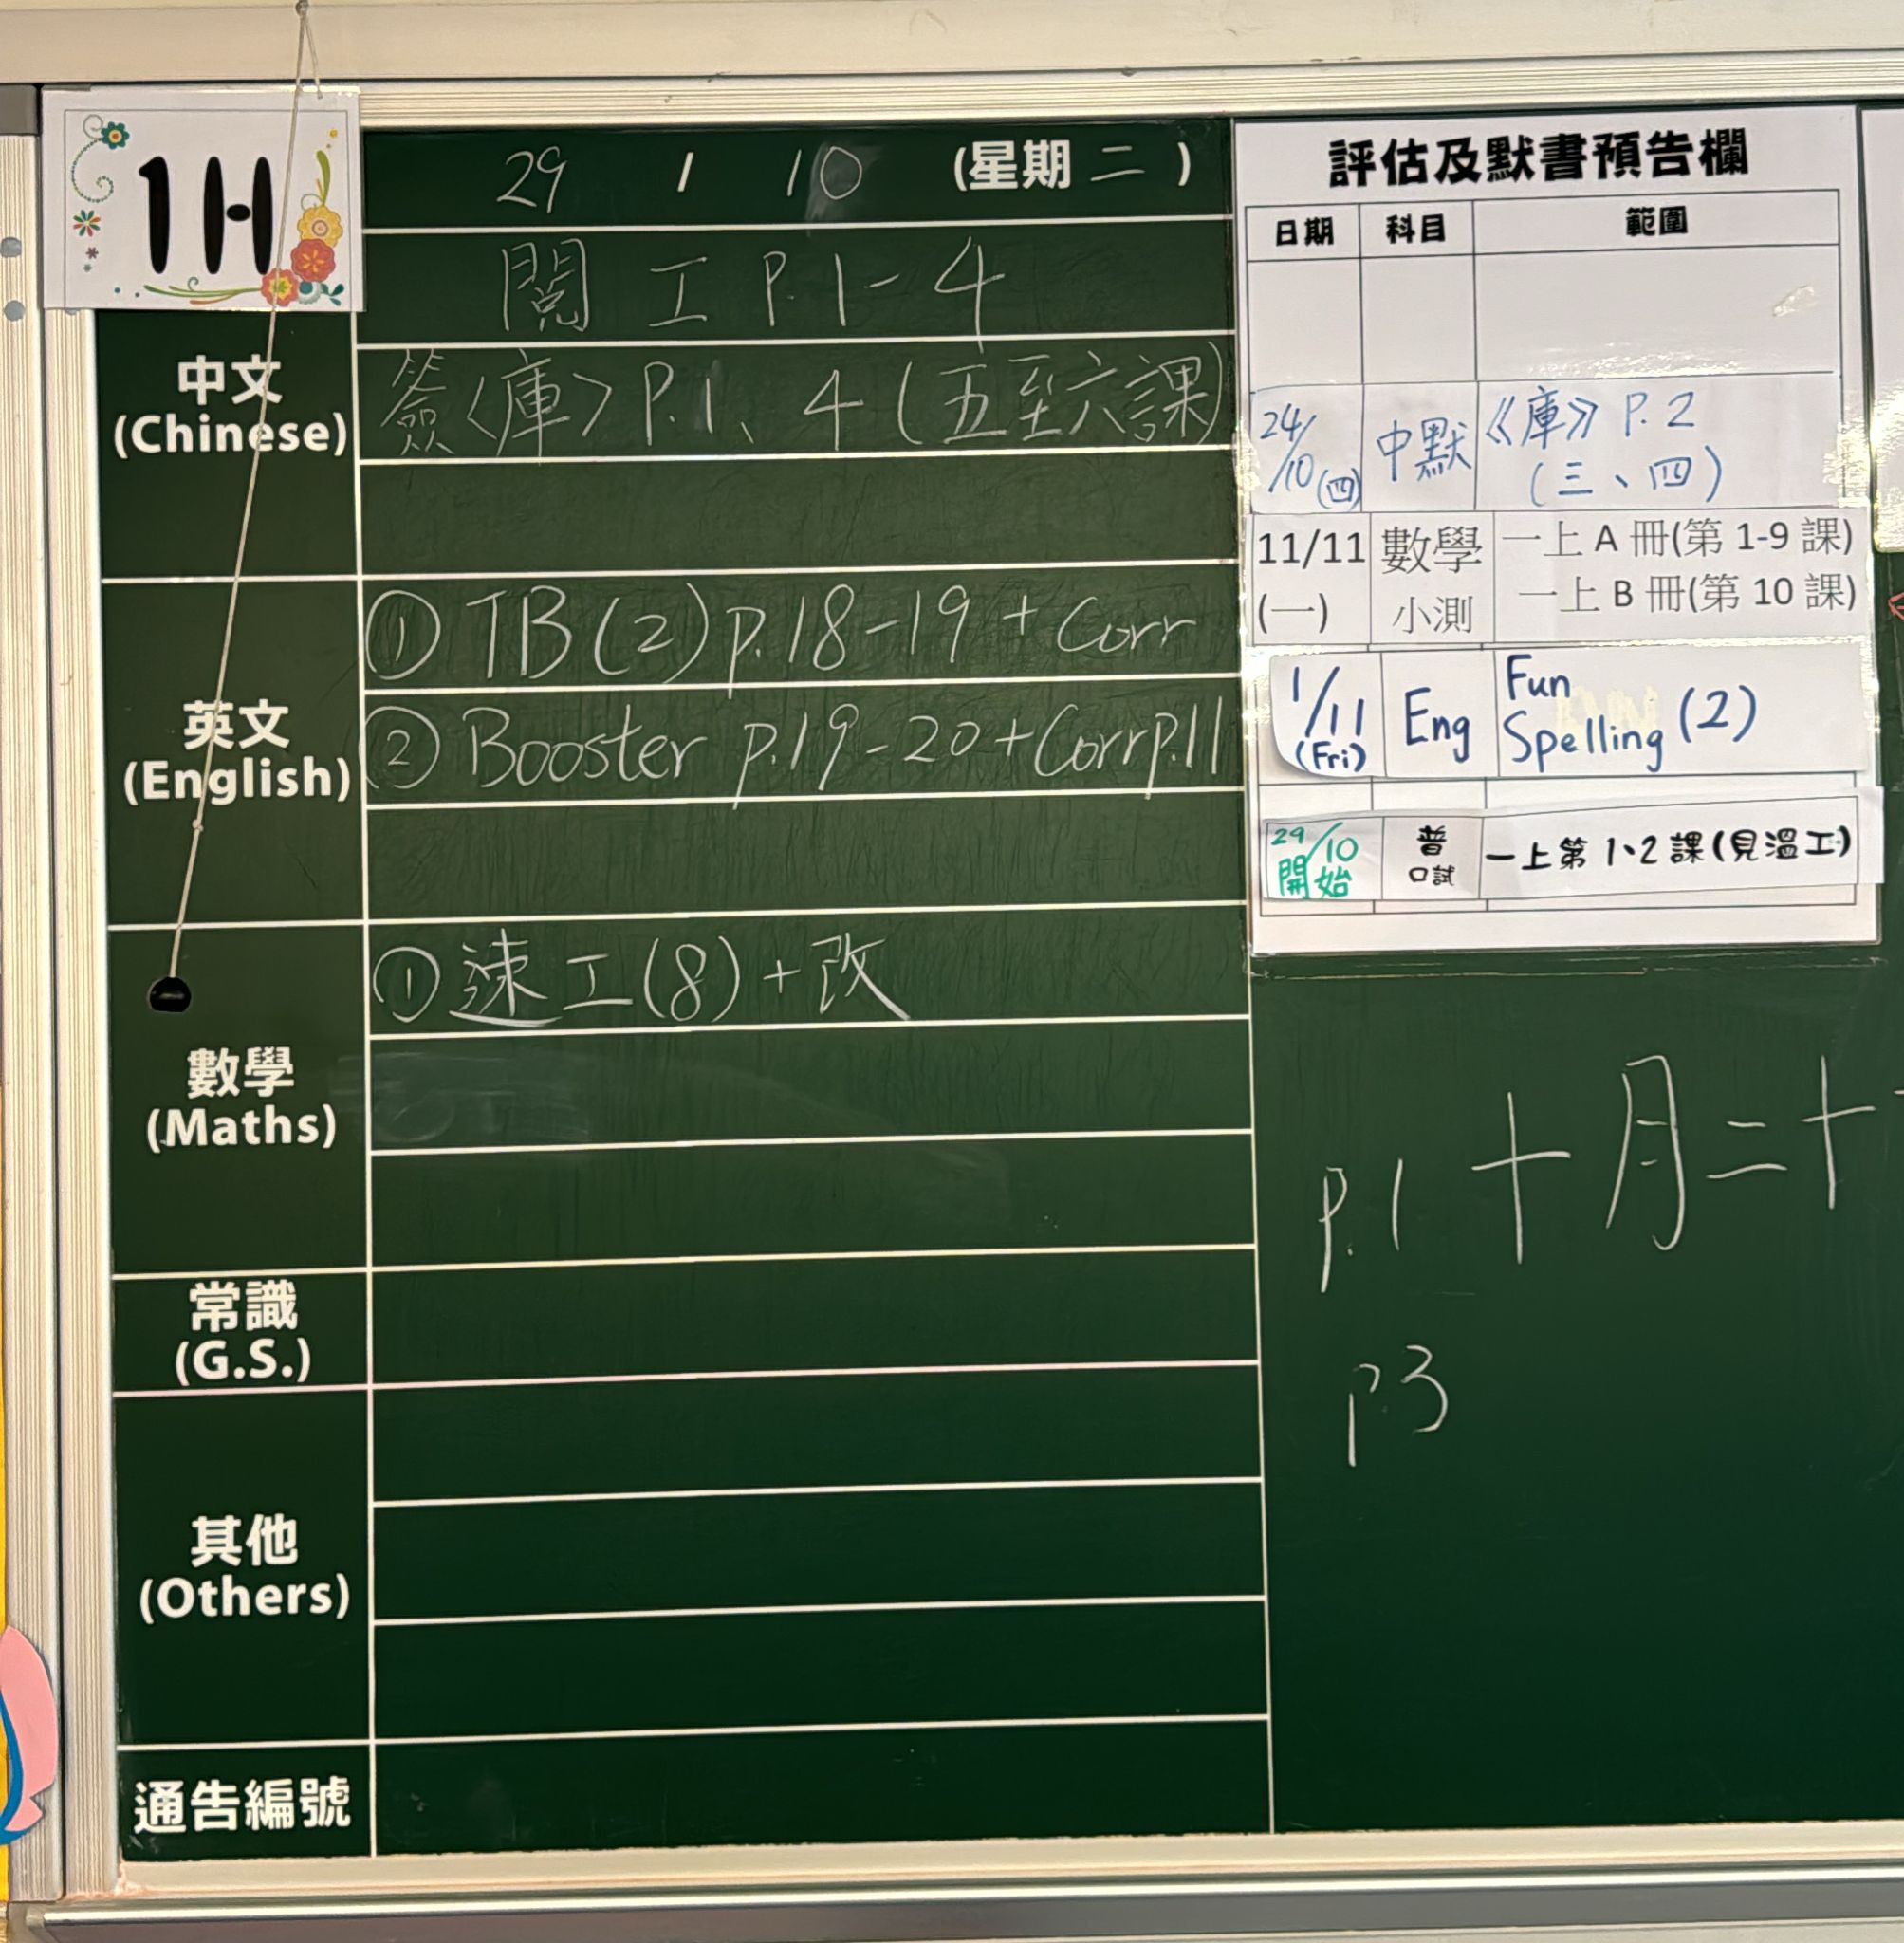 1H
29 / 10 (星期二)
閱工 P.1-4
中文
(Chinese)
簽〈庫〉P.1、4(五至六課)
英文
(English)
① TB(2) p.18-19 + Corr
② Booster p.19-20 + Corr p.11
數學
(Maths)
① 速工(8)+改
常識
(G.S.)
其他
(Others)
通告編號
評估及默書預告欄
日期 科目 範圍
24/10(四) 中默 《庫》P.2
(三、四)
11/11 數學 一上 A 冊(第 1-9 課)
(一) 小測 一上 B 冊(第 10 課)
1/11 Eng Fun
(Fri) Spelling (2)
29/10 普 一上第1、2課(見溫工)
開始 口試
P.1 十月二十
P.3